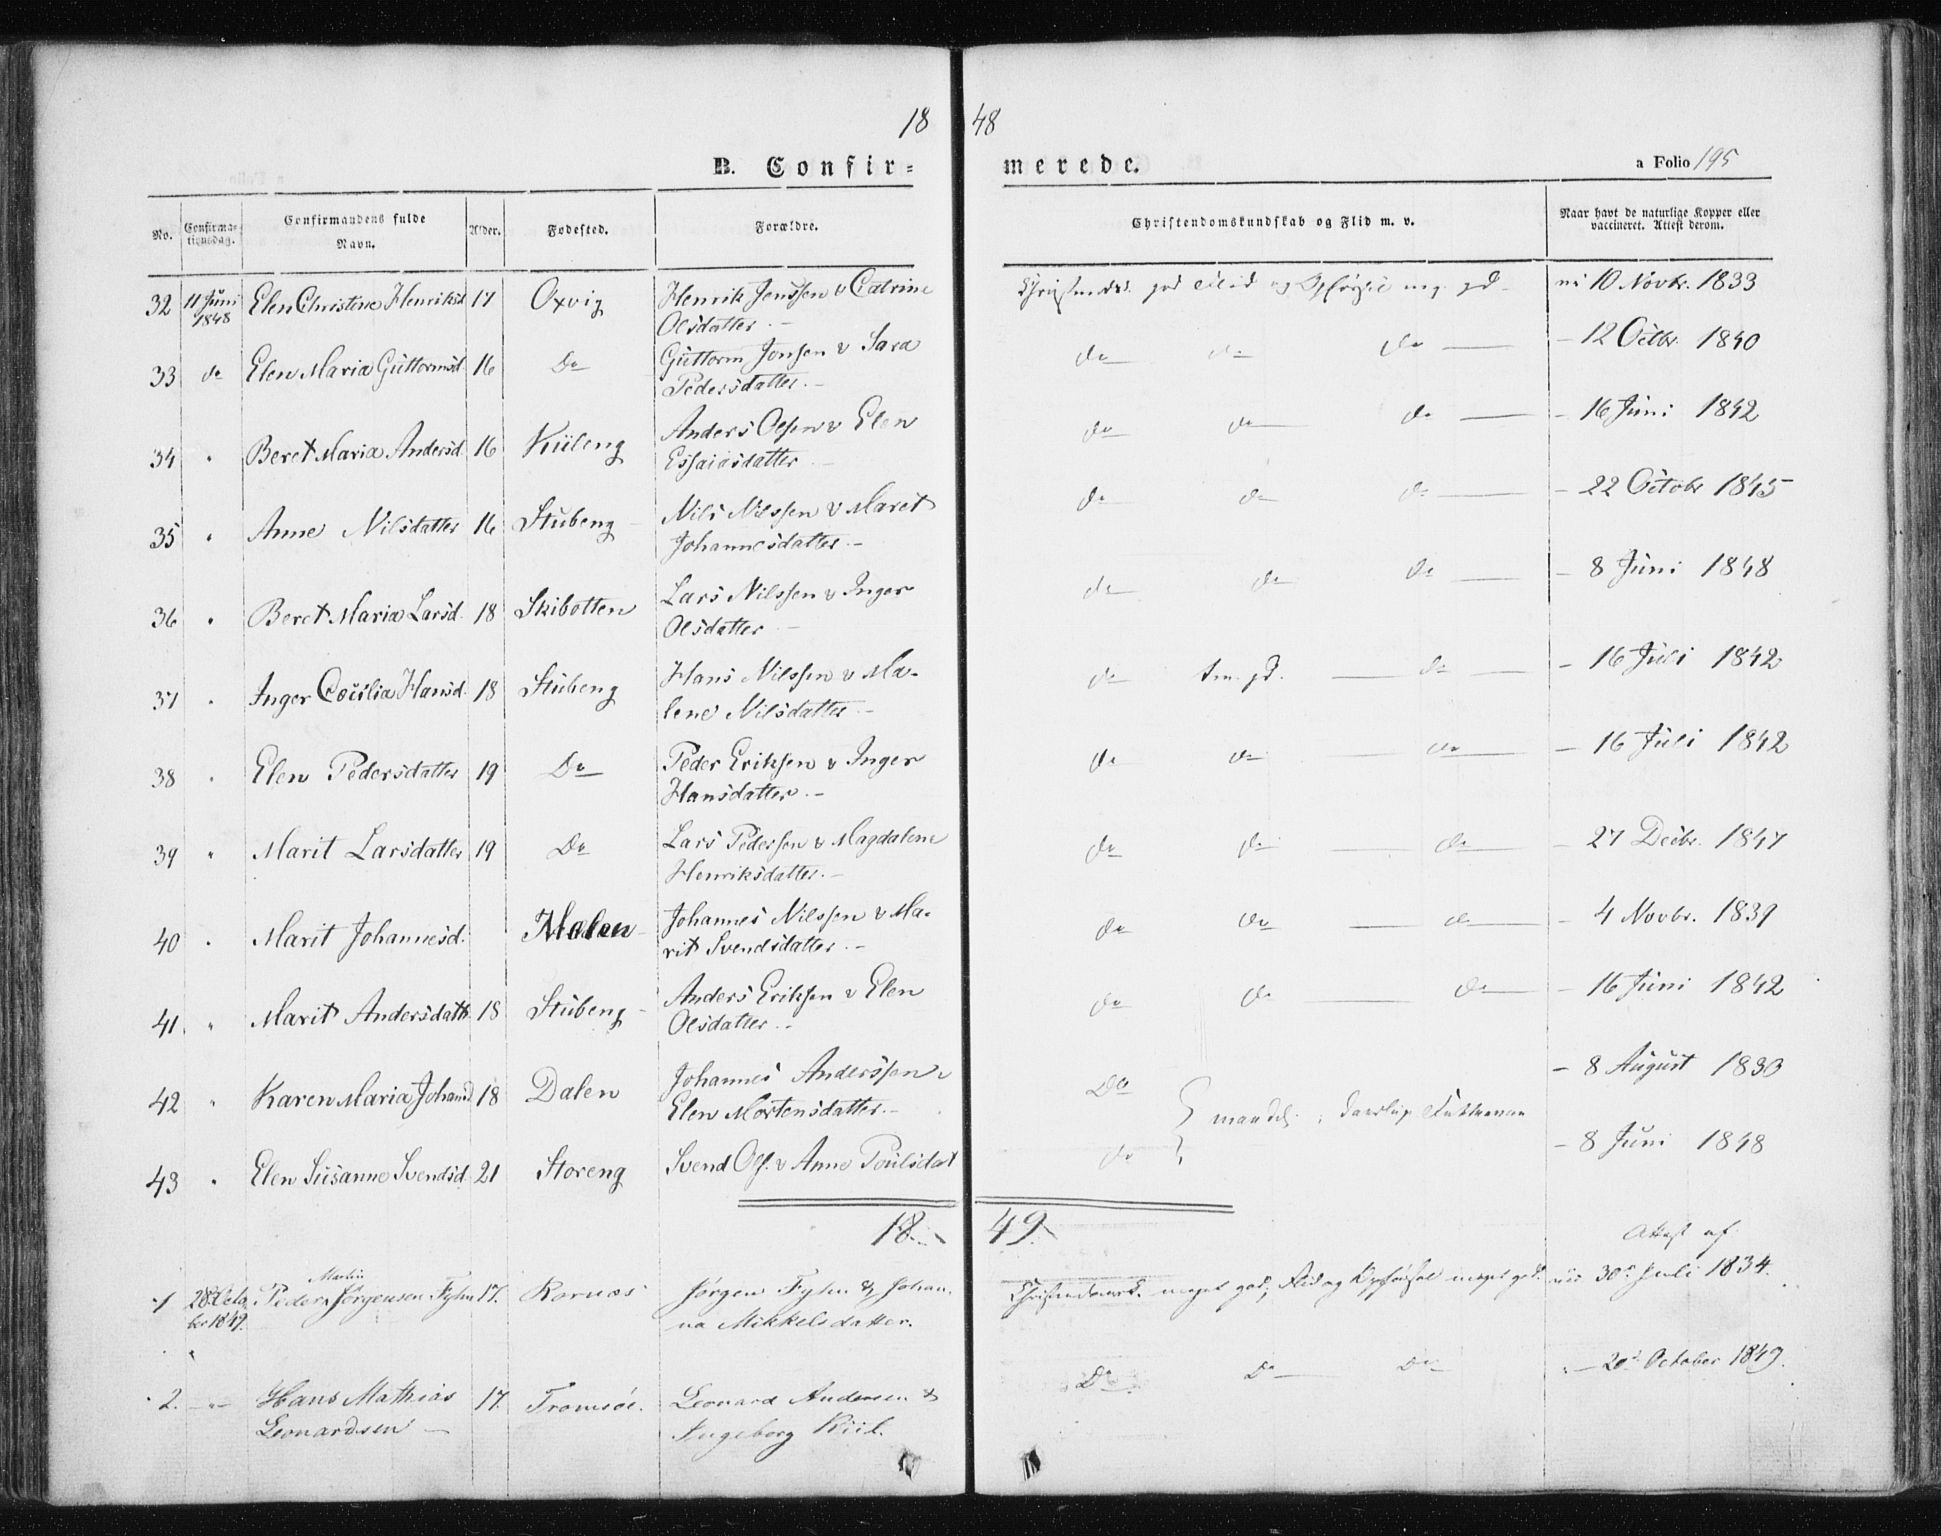 18 48
B. Confir= merede.
a Folio 195
No. Confirma=tionsdag. Confirmandens fulde Navn. Alder. Fødested. Forældre. Christendomskundskab og Flid m. v. Naar havt de naturlige Kopper eller vaccineret. Attest derom.
32 11 Juni 1848 Elen Christine Henriksd 17 Oxvig Henrik Jenssen & Catrine
Olsdatter.- 10 Novbr. 1833
33 do Elen Maria Guttormsd. 16 Do Guttorm Jonsen & Sara
Pedersdatter.- do do do - 12 Octbr. 1840
34 " Beret Maria Andersd. 16 Kileng Anders Olsen & Elen
Essaiasdatter do do do - 16 Juni 1842
35 " Anne Nilsdatter 16 Stubeng Nils Nilssen & Maret
Johannesdatter.- do do do - 22 Octobr 1845
36 " Beret Maria Larsd. 18 Skibotten Lars Nilssen & Inger
Olsdatter do do do - 8 Juni 1848
37 " Inger Cecilia Hansd. 18 Stubeng Hans Nilssen & Ma-
lene Nilsdatter.- do do - 16 Juli 1842
38 " Elen Pedersdatter 19 Do Peder Eriksen & Inger
Hansdatter.- do do do - 16 Juli 1842
39 " Marit Larsdatter 19 Do Lars Pedersen & Magdalene
Henriksdatter.- do do do - 27 Decbr. 1847
40 " Marit Johannesd. Malen Johannes Nilssen & Ma-
rit Svendsdatter.- do do do - 4 Novbr. 1839
41 " Marit Andersdatt 18 Stubeng Anders Eriksen & Elen
Olsdatter.- do do do - 16 Juni 1842
42 " Karen Maria Johansd 18 Dalen Johannes Anderssen &
Elen Mortensdatter.- Do - 8 August 1830
43 " Elen Susanne Svendsd. 21 Storeng Svend Ols. & Anne Poulsdat do - 8 Juni 1848
18 49.
Attest af
1 28 October 1849. Peder Martin Jørgensen Fyhn 17. Rornæs Jørgen Fyhn & Johan-
na Mikkelsdatter. Christendomsk. meget god; Flid og Opførsel meget god. 30te Juli 1834.
2. " Hans Mathias 17. Tromsöe. Leonard Andersen &
Leonardsen Ingeborg Kiil. Do Do Do - 20de October 1849.